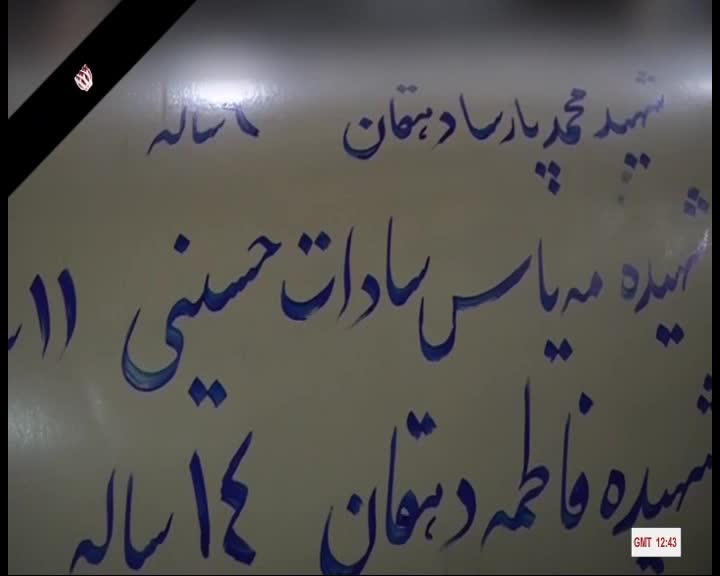 شهید محمد پارسا دهقان ساله
شهیده یاس سادات حسینی ۱۱
شهیده فاطمه دهقان ۱۴ ساله
GMT 12:43